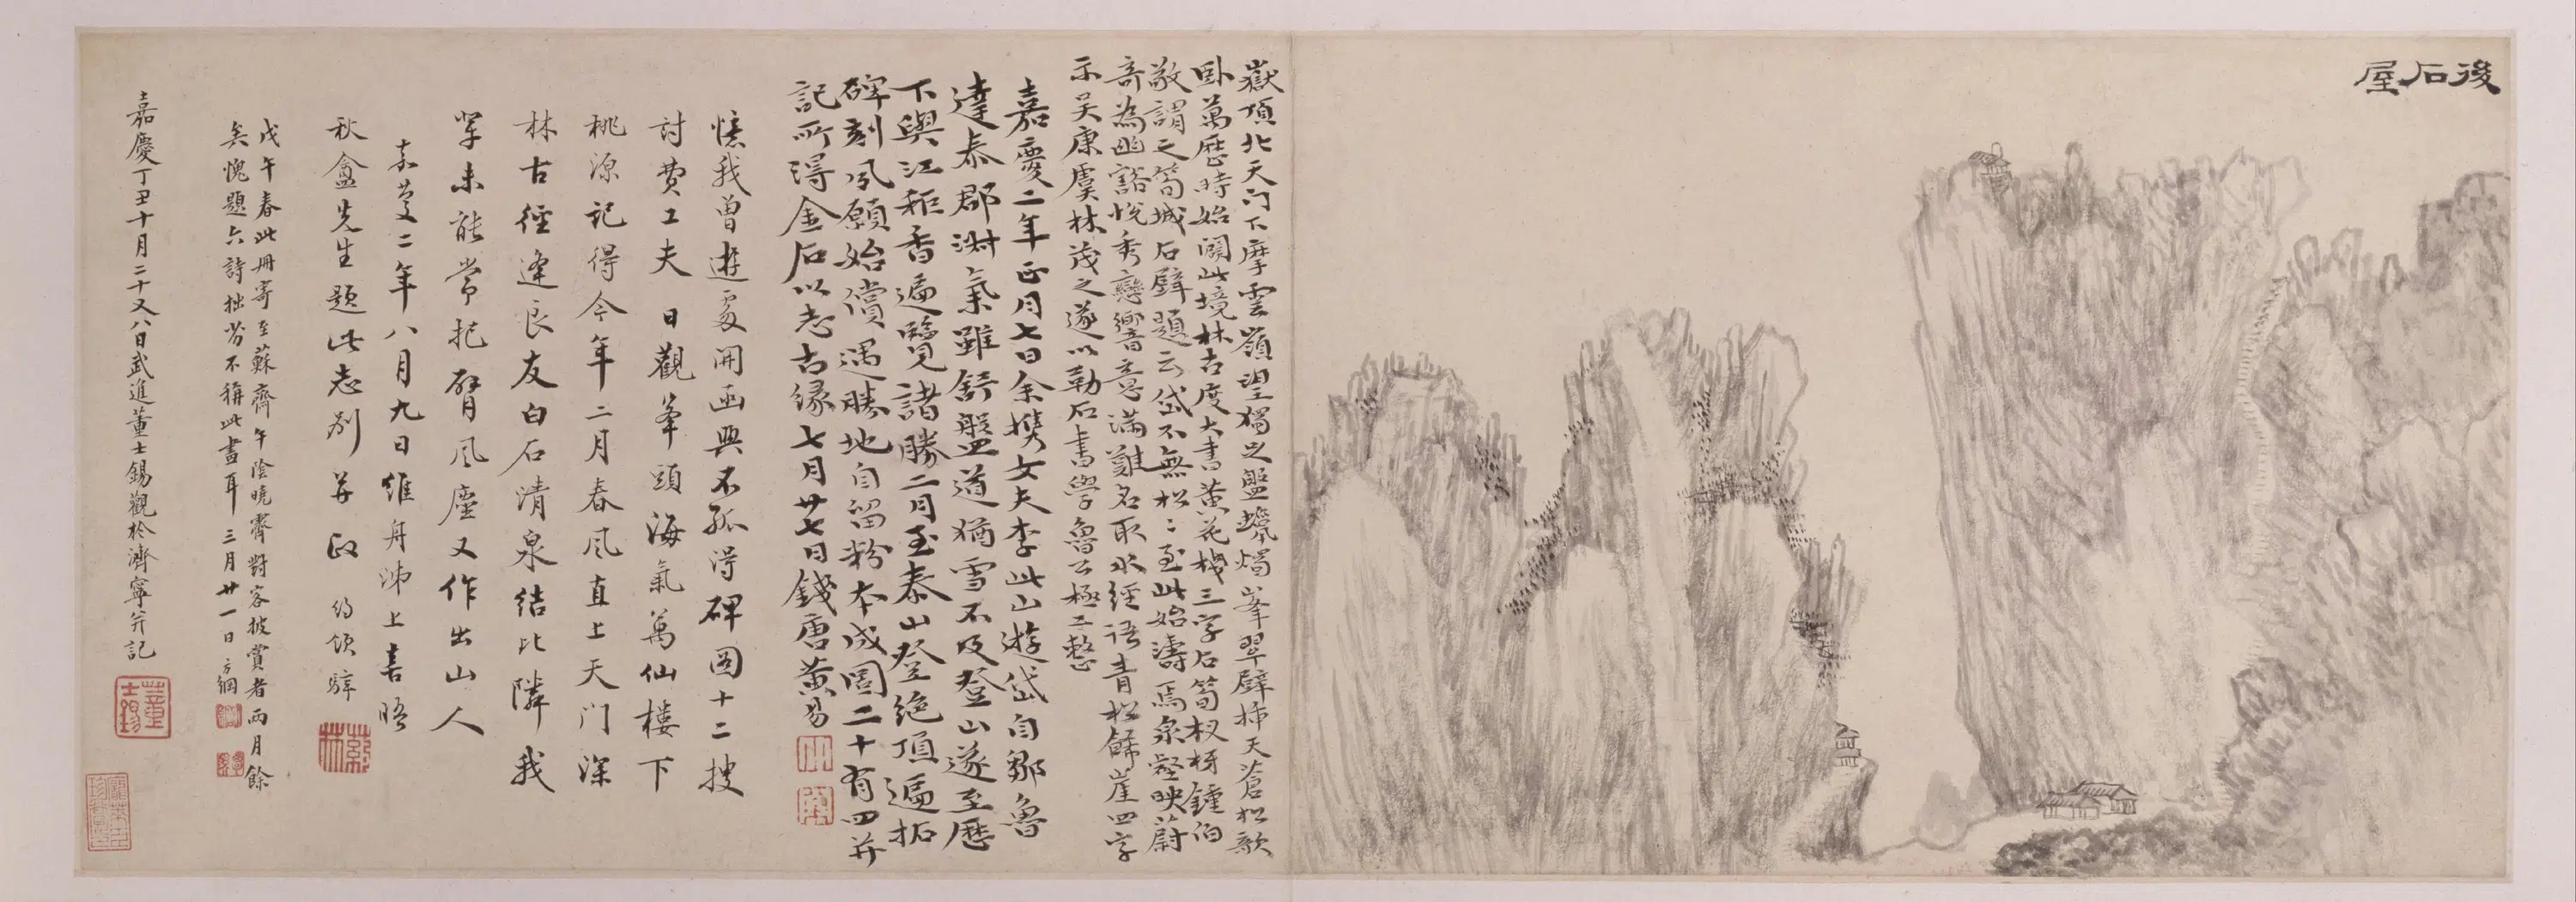 後石屋
嶽頂北天门下摩雲嶺望獨足盤蠟燭峯翠壁插天蒼松欹
卧萬歷時始闢此境林古度大書黄花棧三字石筍杈枒鍾伯
敬謂之筍城石壁題云岱不無松〻至此始濤焉泉壑映蔚
奇為幽谿悅秀巒響音滿難名取水經語青松飾崖四字
示吴康虞林茂之遂以勒石書學魯公極工整
嘉慶二年正月七日余攜女夫李此山遊岱自鄒魯
達泰郡淑氣雖舒盤道猶雪不及登山遂至歷
下與江秬香遍覽諸勝二月至泰山登絶頂遍拓
碑刻夙願始償遇勝地自留粉本成圖二十有四并
記所得金石以志古緣七月廿七日錢唐黄易
憶我曾遊處開函興不孤得碑圖十二搜
討費工夫日觀峯頭海氣萬仙樓下
桃源記得今年二月春風直上天门深
林古徑逢良友白石清泉結比隣我
輩未能常把臂風塵又作出山人
嘉慶二年八月九日維舟沛上喜晤
秋盦先生題此志别并政
戊午春此册寄至蘇齋午陰曉霽對客披賞者兩月餘
矣愧題六詩拙劣不稱此畫耳三月廿一日方綱
嘉慶丁丑十月二十又八日武進董士錫觀於濟寧并記
董士錫